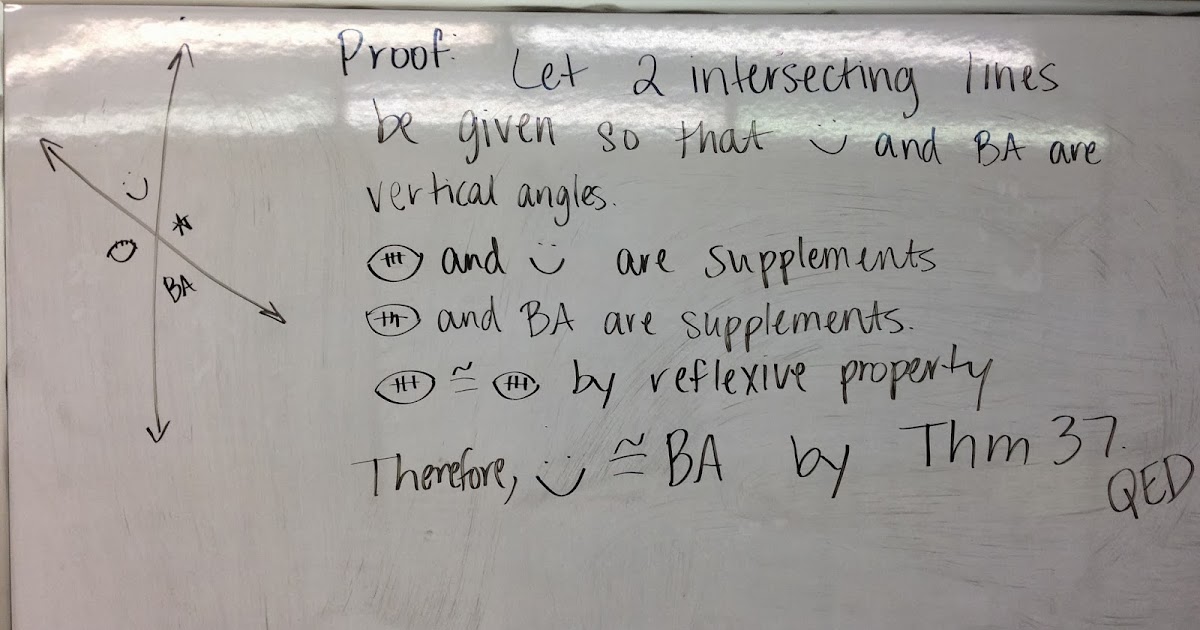 Proof: Let 2 intersecting lines
be given so that :) and BA are
vertical angles.
and :) are supplements
and BA are supplements.
≅ by reflexive property
Therefore, :) ≅ BA by Thm 37.
QED
:)
*
BA